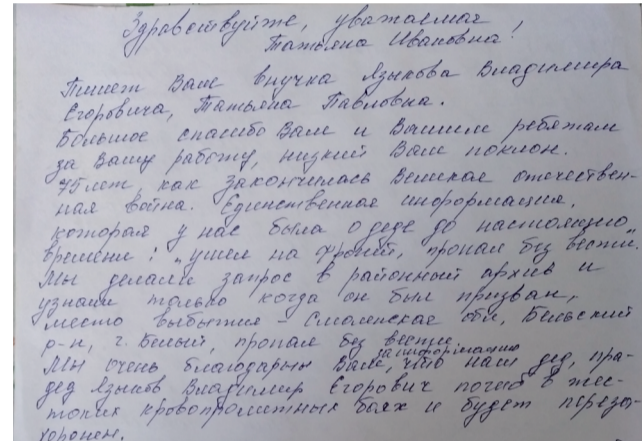 Здравствуйте, уважаемая
Татьяна Ивановна!
Пишет Вам внучка Языкова Владимира
Егоровича, Татьяна Павловна.
Большое спасибо Вам и Вашим ребятам
за Вашу работу, низкий Вам поклон.
75 лет, как закончилась Великая отечествен-
ная война. Единственная информация,
которая у нас была о деде до настоящего
времени: „ушел на фронт, пропал без вести".
Мы делали запрос в районный архив и
узнали только когда он был призван,
место выбытия - Смоленская обл, Бельский
р-н, г. Белый, пропал без вести.
за информацию
Мы очень благодарны Вам, что наш дед, пра-
дед Языков Владимир Егорович погиб в жес-
токих кровопролитных боях и будет перезах-
хоронен.